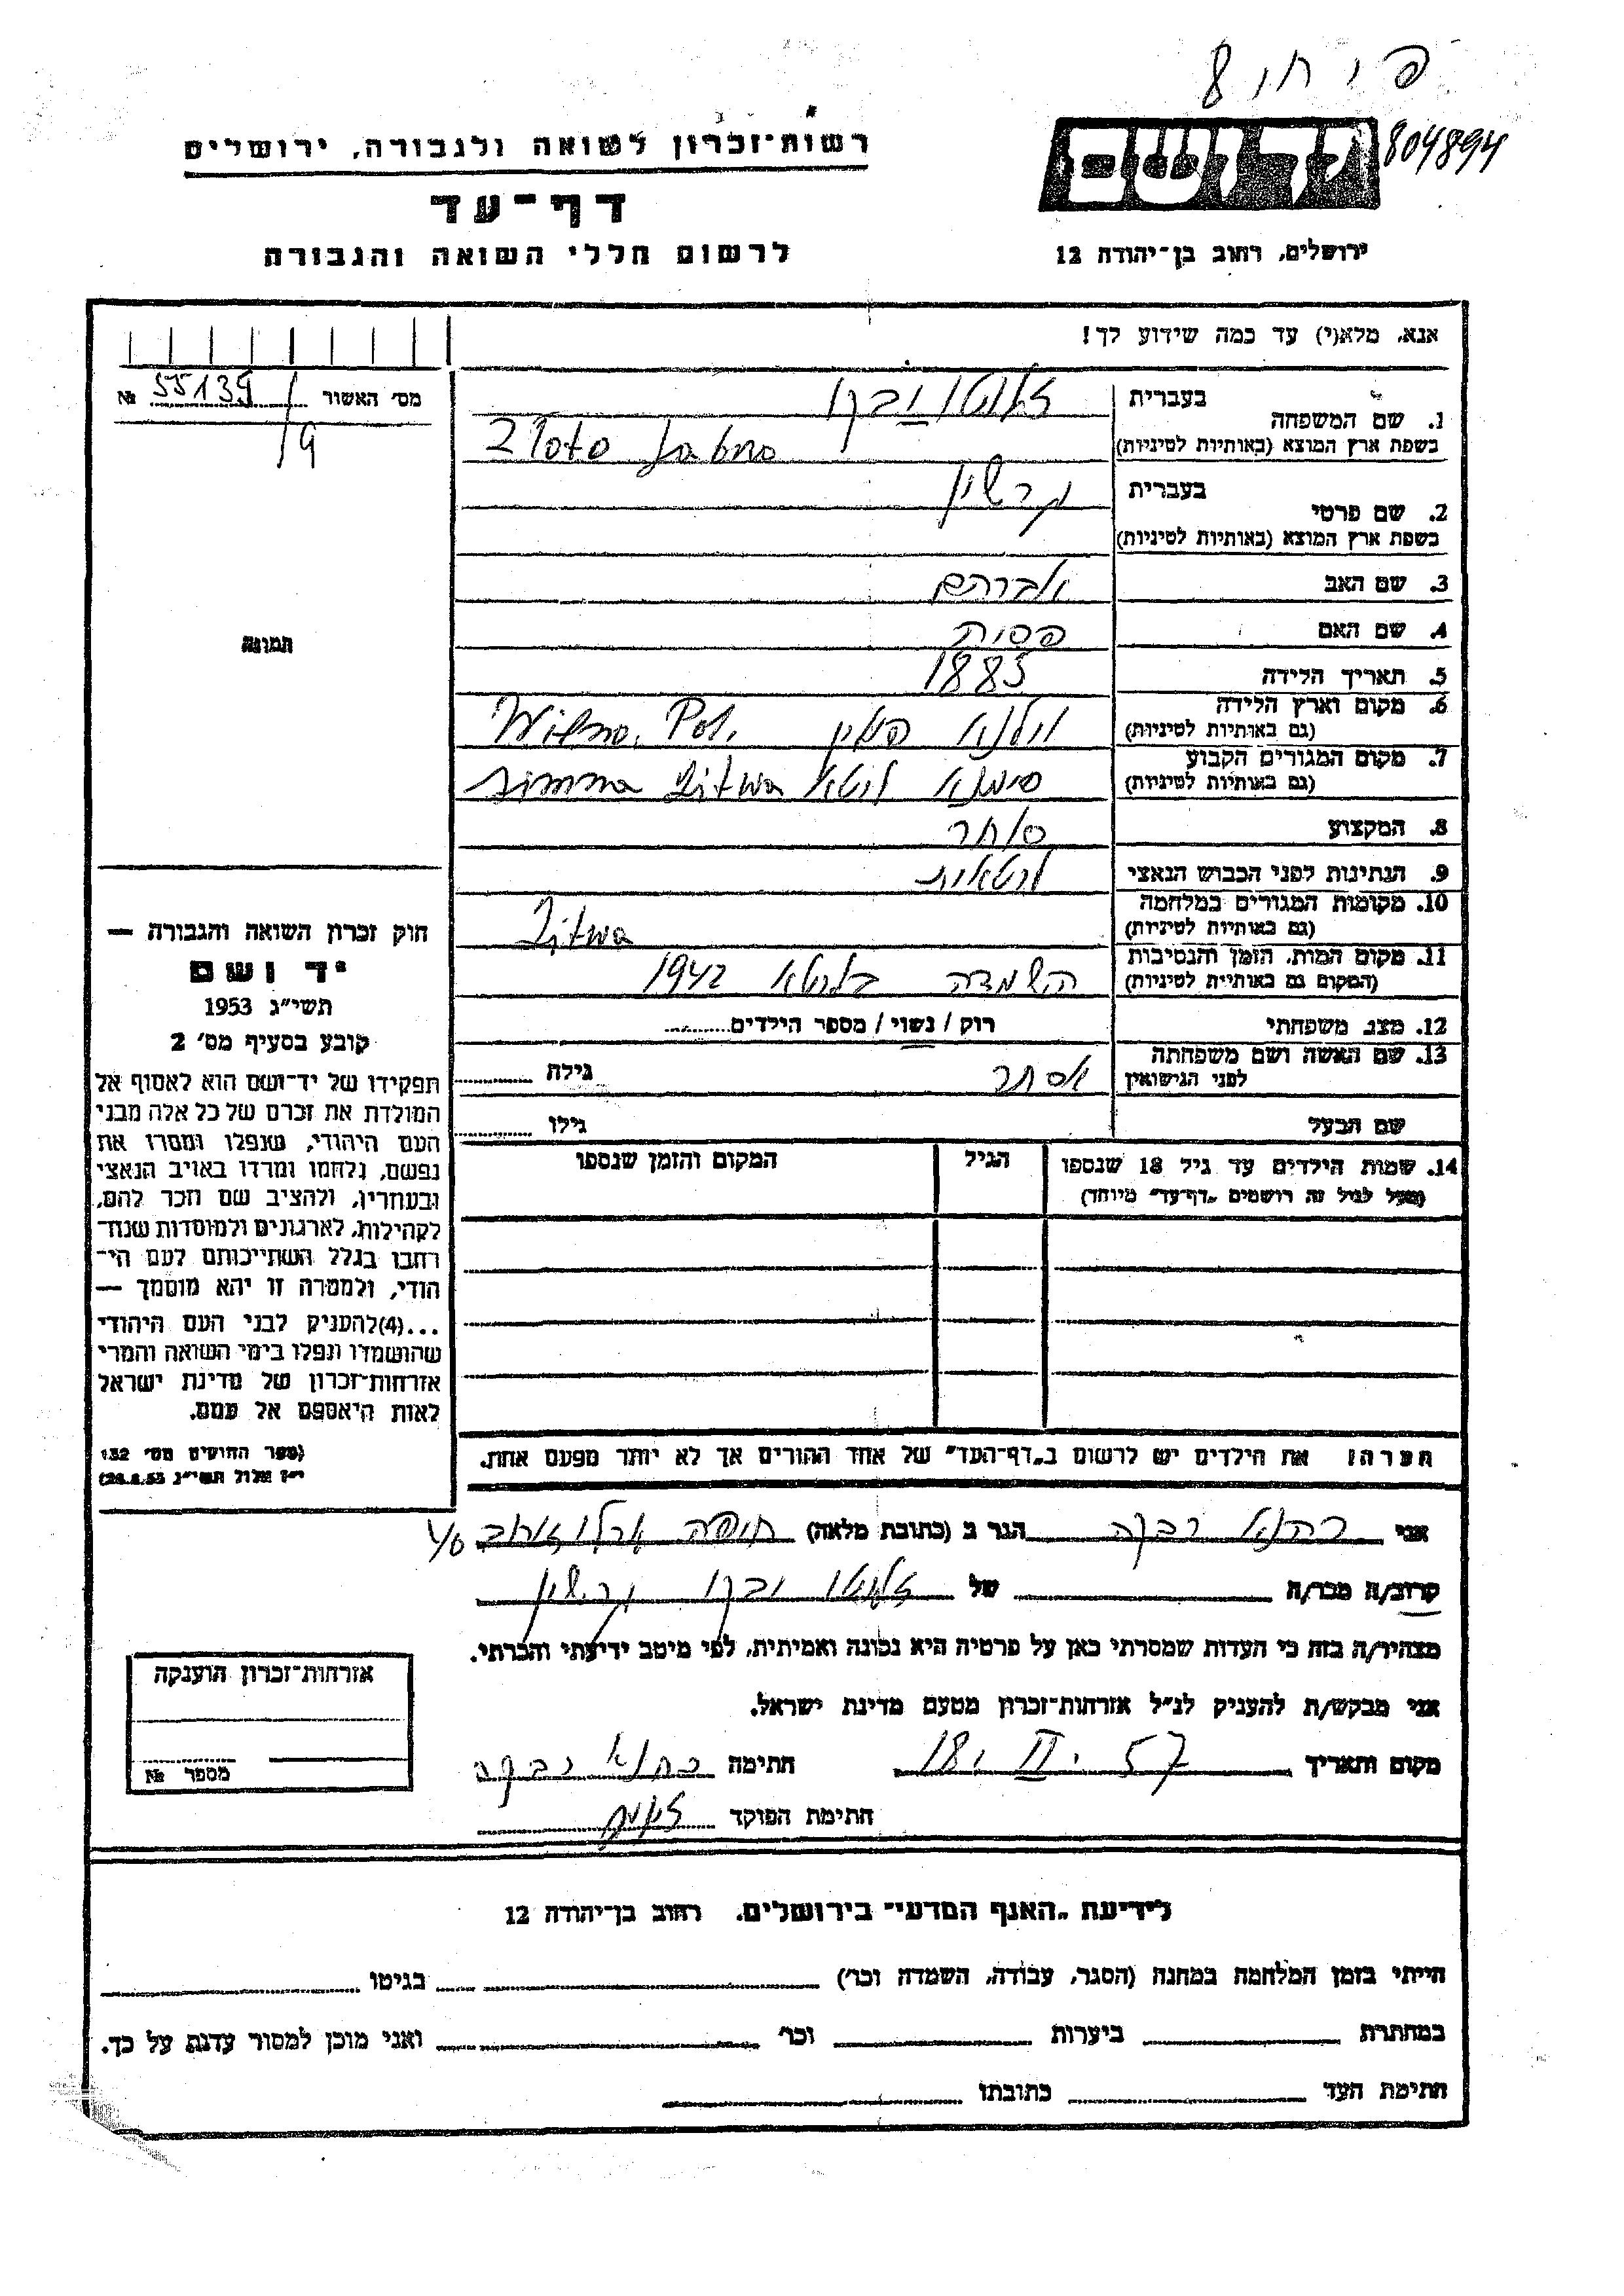 804894
רשות־זכרון לשואה ולגבורה, ירושלים
דף־עד
לרשום חללי השואה והגבורה
יד ושם
ירושלים, רחוב בן־יהודה 12
אנא, מלא(י) עד כמה שידוע לך!
מס׳ האשור 55139 №
1. שם המשפחה
בעברית
בשפת ארץ המוצא (באותיות לטיניות)
2. שם פרטי
בעברית
בשפת ארץ המוצא (באותיות לטיניות)
3. שם האב אברהם
4. שם האם
5. תאריך הלידה 1883
6. מקום וארץ הלידה וילנא פולין Wilno, Pol.
(גם באותיות לטיניות)
7. מקום המגורים הקבוע ליטא Litwa
(גם באותיות לטיניות)
8. המקצוע סוחר
9. הנתינות לפני הכבוש הנאצי ליטאית
10. מקומות המגורים במלחמה Litwa
(גם באותיות לטיניות)
11. מקום המות, הזמן והנסיבות השמדה בליטא 1942
(המקום גם באותיות לטיניות)
12. מצב משפחתי רוק / נשוי / מספר הילדים
13. שם האשה ושם משפחתה אסתר גילה
לפני הנישואין
שם הבעל גילו
14. שמות הילדים עד גיל 18 שנספו הגיל המקום והזמן שנספו
(מעל לגיל זה רושמים „דף־עד״ מיוחד)
תמונה
חוק זכרון השואה והגבורה —
יד ושם
תשי״ג 1953
קובע בסעיף מס׳ 2
תפקידו של יד־ושם הוא לאסוף אל
המולדת את זכרם של כל אלה מבני
העם היהודי, שנפלו ומסרו את
נפשם, נלחמו ומרדו באויב הנאצי
ובעוזריו, ולהציב שם וזכר להם,
לקהילות, לארגונים ולמוסדות שנח־
רחבו בגלל השתייכותם לעם הי־
הודי, ולמטרה זו יהא מוסמך —
...(4)להעניק לבני העם היהודי
שהושמדו ונפלו בימי השואה והמרי
אזרחות־זכרון של מדינת ישראל
לאות היאספם אל עמם.
(ספר החוקים מס׳ 132
י״ז אלול תשי״ג 28.8.53)
הערה: את הילדים יש לרשום ב„דף־העד״ של אחד ההורים אך לא יותר מפעם אחת.
אני כהנא רבקה הגר ב (כתובת מלאה) חיפה ארלוזורוב
קרוב/ה מכר/ה של
מצהיר/ה בזה כי העדות שמסרתי כאן על פרטיה היא נכונה ואמיתית, לפי מיטב ידיעתי והכרתי.
אני מבקש/ת להעניק לנ״ל אזרחות־זכרון מטעם מדינת ישראל.
מקום ותאריך 18. II. 57 חתימה כהנא רבקה
חתימת הפוקד
אזרחות־זכרון הוענקה
מספר №
לידיעת „האגף המדעי״ בירושלים, רחוב בן־יהודה 12
הייתי בזמן המלחמה במחנה (הסגר, עבודה, השמדה וכר׳) בגיטו
במחתרת ביערות וכר׳ ואני מוכן למסור עדות על כך.
חתימת העד כתובתו